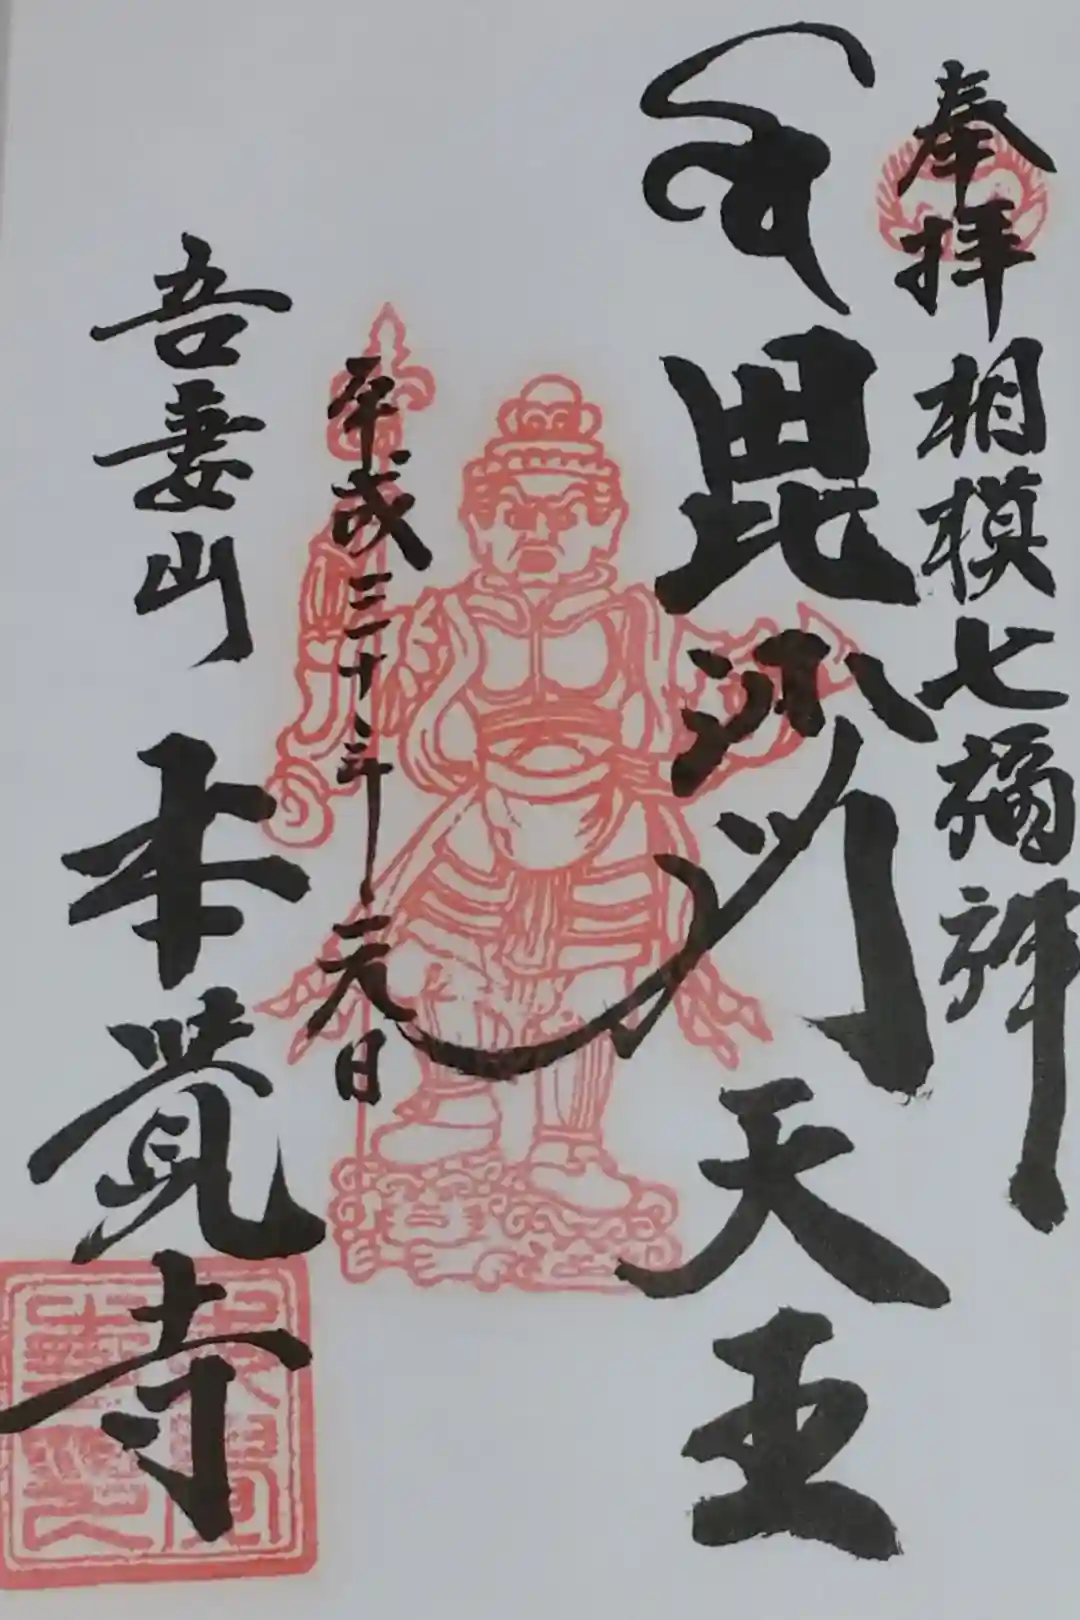 奉拝
相模七福神
毘沙門天王
平成三十年元日
吾妻山
本覚寺